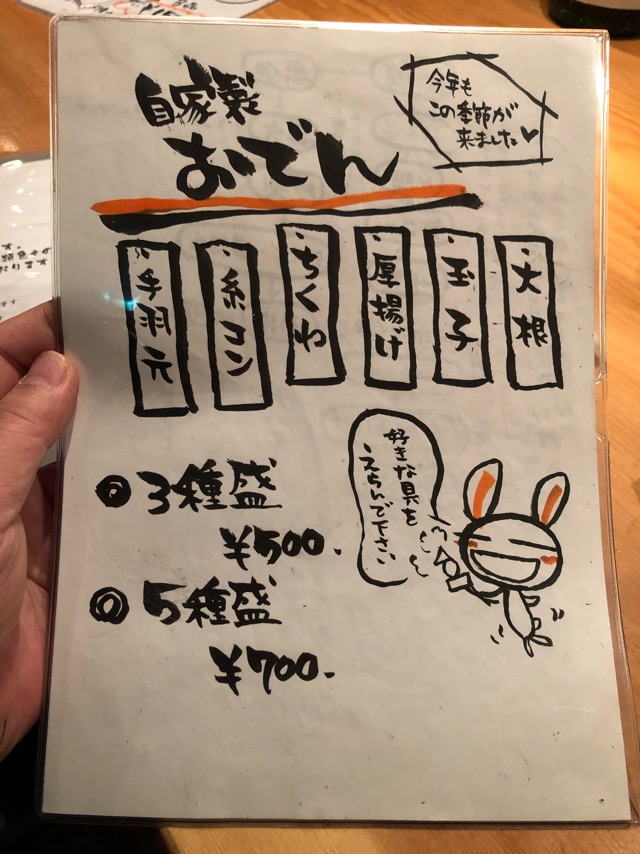 自家製
おでん
今年も
この季節が
来ました
大根
玉子
厚揚げ
ちくわ
糸コン
手羽元
好きな具を
えらんで下さい
◎3種盛
¥500.
◎5種盛
¥700.